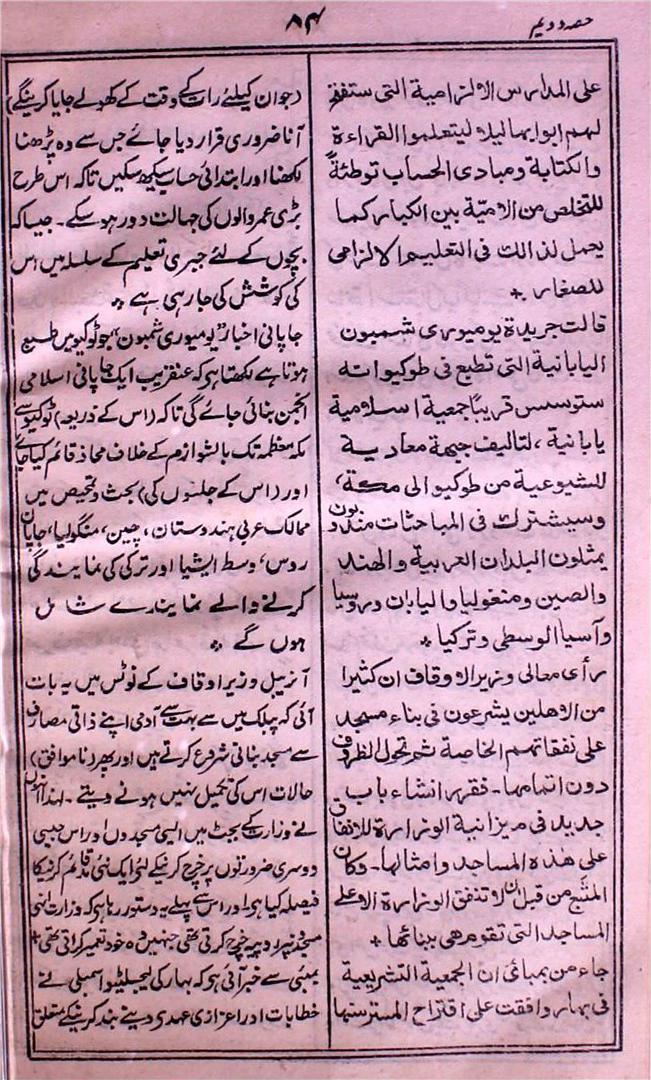 حصہ دویم
۸۴
على المدارس الالزامية التى ستفتح
لهم ابوابها ليلا ليتعلموا القراءة
والكتابة ومبادى الحساب توطئةً
للتخلص من الامّية بين الكبار كما
يعمل لذالك فى التعليم الالزامى
للصغار ٭
قالت جريدة يوميورى شمبون
اليابانية التى تطبع فى طوكيو انه
ستوسس قريباً جمعية اسلامية
يابانية، لتاليف جبهة معادية
للشيوعية من طوكيو الى مكة،
وسيشترك فى المباحثات مندوبون
يمثلون البلدان العربية والهند
والصين ومنغوليا واليابان وروسيا
وآسيا الوسطى وتركيا ٭
رأى معالى وزير الاوقاف ان كثيرا
من الاهلين يشرعون فى بناء مسجد
على نفقاتهم الخاصة ثم تحول الظروف
دون اتمامها۔ فقرر انشاء باب
جديد فى ميزانية الوزارة للانفاق
على هذه المساجد وامثالها۔ وكان
المتّبع من قبل ان لا تنفق الوزارة الا على
المساجد التى تقوم هى ببنائها ٭
جاء من بمبائى انّ الجمعية التشريعية
فى بهار وافقت على اقتراح المسترسنها
(جوان کیلئے رات کے وقت کے کھولے جایا کرینگے)
آنا ضروری قرار دیا جائے جس سے وہ پڑھنا
لکھنا اور ابتدائی حساب سیکھ سکیں تاکہ اس طرح
بڑی عمر والوں کی جہالت دور ہو سکے۔ جیسا کہ
بچوں کے لئے جبری تعلیم کے سلسلہ میں اس
کی کوشش کی جا رہی ہے ٭
جاپانی اخبار "یومیوری شمبون" جو ٹوکیو میں طبع
ہوتا ہے لکھتا ہی کہ عنقریب ایک جاپانی اسلامی
انجمن بنائی جائے گی تاکہ (اس کے ذریعہ) ٹوکیو سے
مکہ معظمہ تک بالشوازم کے خلاف محاذ قائم کیا جائے
اور (اس کے جلسوں کی) بحث و تمحیص میں
ممالک عربی ہندوستان، چین، منگولیا، جاپان
روس، وسط ایشیا اور ترکی کی نمایندگی
کرنے والے نمایندے شامل
ہوں گے ٭
آنریبل وزیر اوقاف کے نوٹس میں یہ بات
آئی کہ پبلک میں سے بہت سے آدمی اپنے ذاتی مصارف
سے مسجد بنانی شروع کرتے ہیں اور پھر (ناموافق)
حالات اس کی تکمیل نہیں ہونے دیتے۔ لہٰذا انہوں
نے وزارت کے بجٹ میں ایسی مسجدوں اور اس جیسی
دوسری ضرورتوں پر خرچ کرنیکے لئے ایک نئی مد قائم کرنیکا
فیصلہ کیا ہی اور اس سے پہلے یہ دستور رہا ہی کہ وزارت انہی
مسجدونپر روپیہ خرچ کرتی تھی جنہیں وہ خود تعمیر کراتی تھی ٭
بمبئی سے خبر آئی ہی کہ بہار کی لیجسلیٹیو اسمبلی نے
خطابات اور اعزازی عہدی دینے بند کرنیکے متعلق